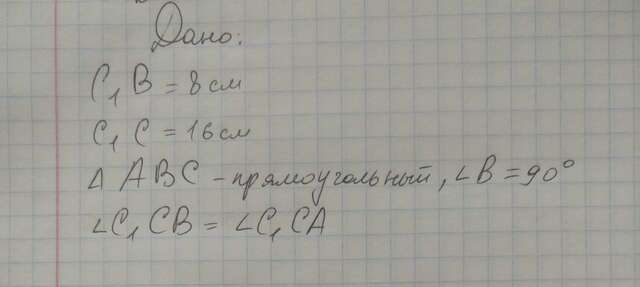 Дано:
C₁B = 8 см
C₁C = 16 см
Δ ABC - прямоугольный, ∠B = 90°
∠C₁CB = ∠C₁CA